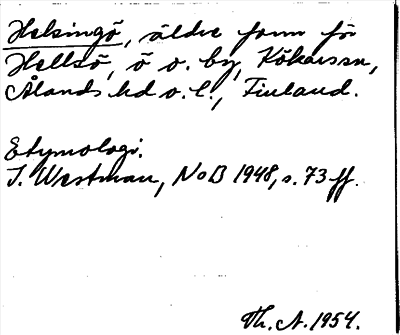 Helsingö, äldre form för
Hellsö, ö o. by, Kökars sn,
Ålands hd o. l., Finland.
Etymologi.
I. Westman, NoB 1948, s. 73 ff.
Th. A. 1954.